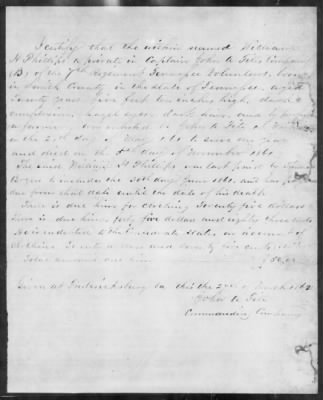 I certify that the within named William
H Phillips a private in Captain John A Fite Company
(B) of the 7th Regiment Tennessee Volunteers born
in Smith County in the State of Tennessee aged
Twenty years five feet ten inches high, dark
complexion, hazel eyes, dark hair, and by
a farmer was enlisted by John A Fite at
on the 20th day of May 1861 to serve one year
and died on the day of November 1861
The said William H Phillips was last paid by
to include the 30th day of June 1861 and has pay
due from that date until the date of his death
There is due him for clothing Twenty five dollars
there is due him forty five dollars and eighty three cents
He is indebted to the Confederate States on account of
clothing
Total amount due him
Given at Fredericksburg Va this the 2nd of March 1862
John A Fite
Commanding Company